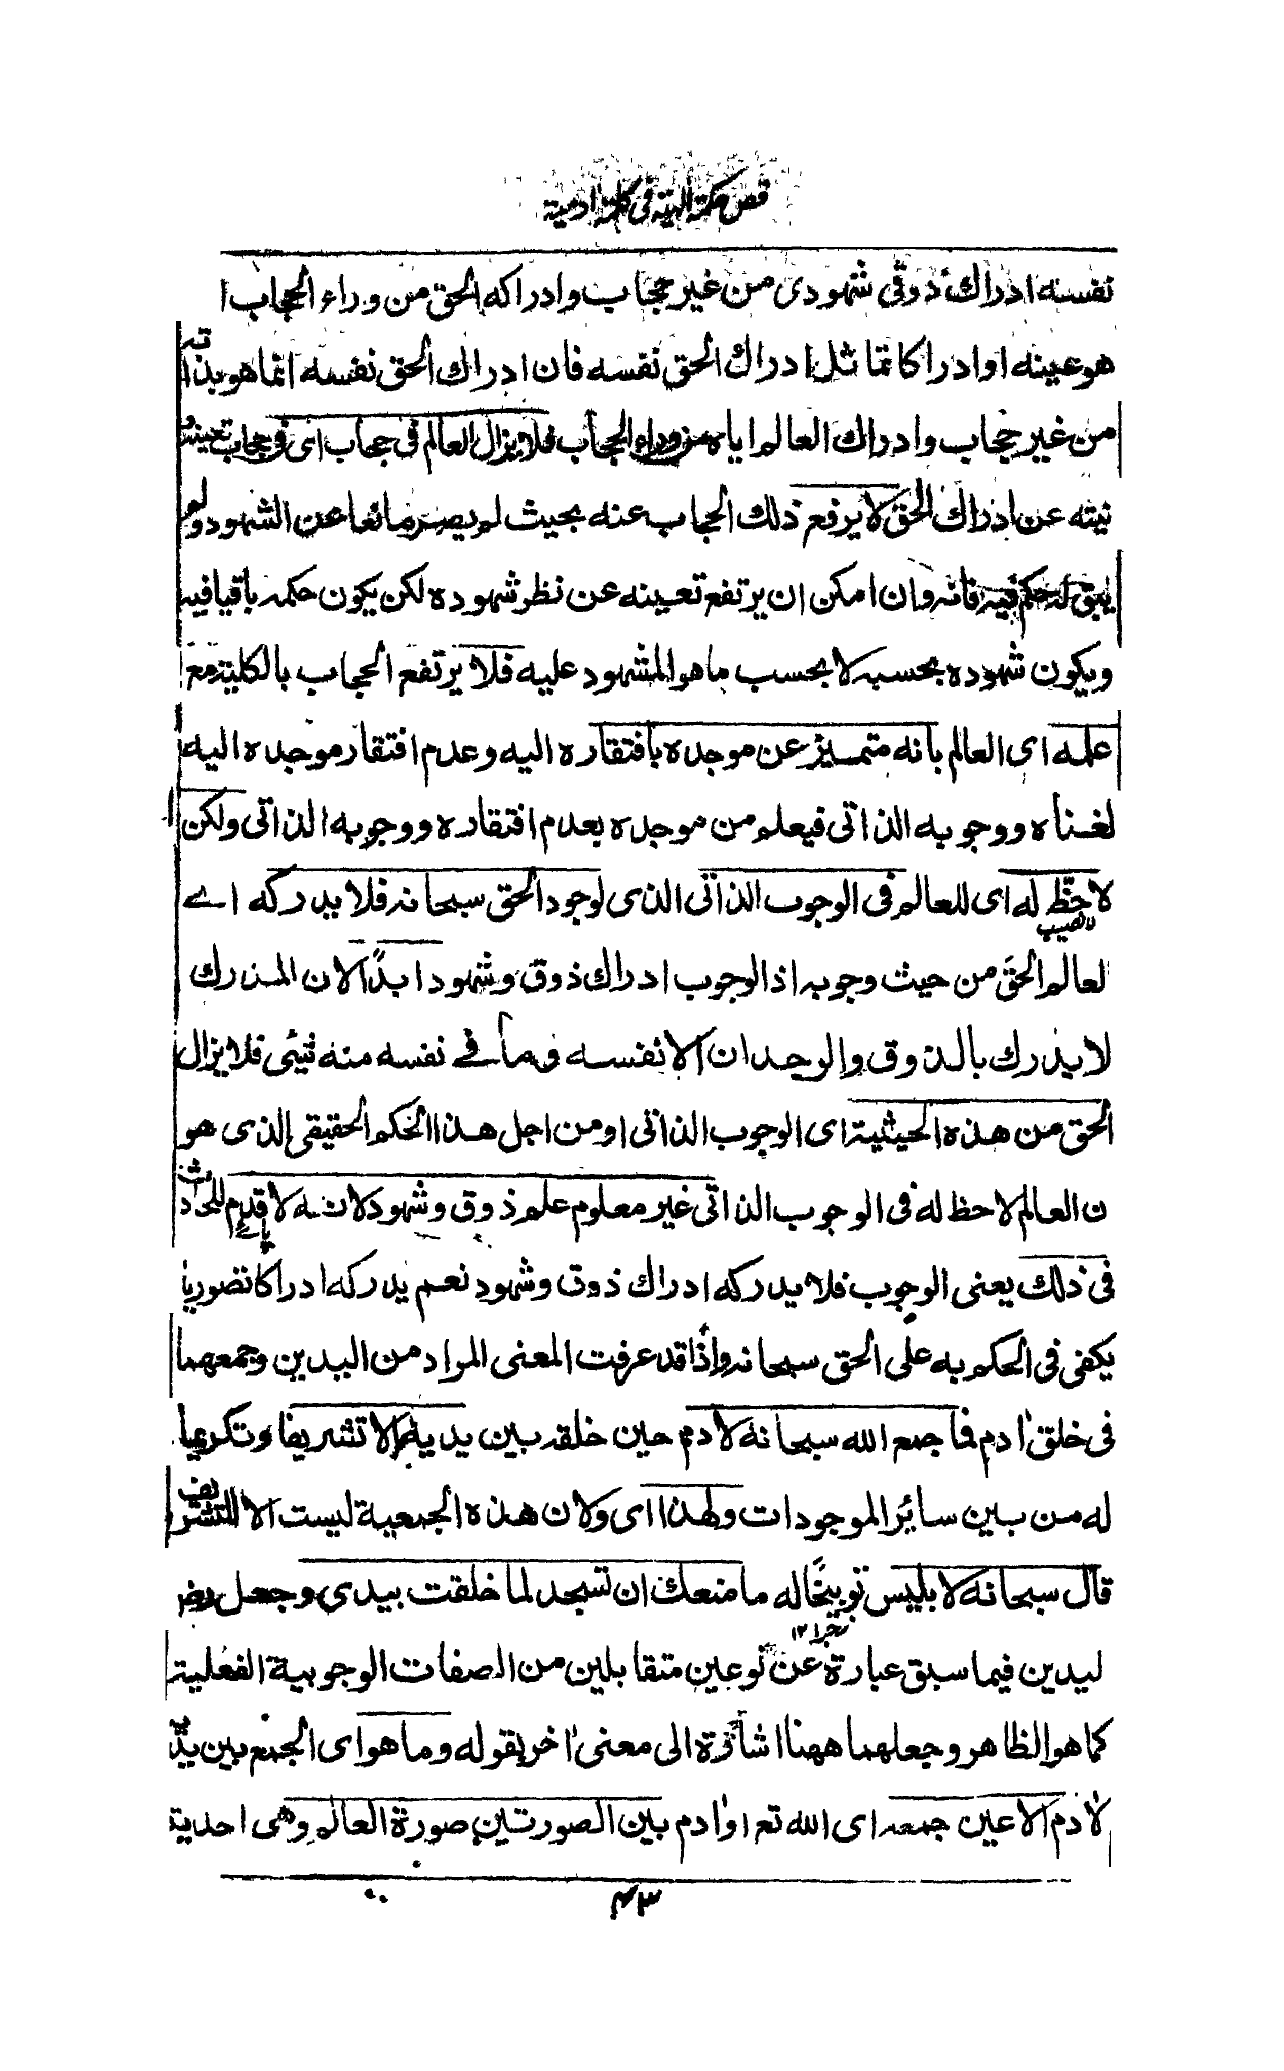 فص حكمة الهية في كلمة ادمية
نفسه ادراك ذوقى شهودى من غير حجاب وادراكه الحق من وراء الحجاب ا
هو عينه او ادراكا تماثل ادراك الحق نفسه فان ادراك الحق نفسه انما هو بذاته
من غير حجاب وادراك العالم اياه من وراء الحجاب فلا يزال العالم فى حجاب اى فى حجاب تعينه وا
نيته عن ادراك الحق لا يرفع ذلك الحجاب عنه بحيث لم يصر مانعا عن الشهود ولم
يبق له حكم فيه فانه وان امكن ان يرتفع تعينه عن نظر شهوده لكن يكون حكمه باقيا فيه
ويكون شهوده بحسبه لا بحسب ما هو المشهود عليه فلا يرتفع الحجاب بالكلية مع
علمه اى العالم بانه متميز عن موجده بافتقاره اليه وعدم افتقار موجده اليه
لغناه ووجوبه الذاتى فيعلم من موجده بعدم افتقاره ووجوبه الذاتى ولكن
لا حظ له اى للعالم فى الوجوب الذاتى الذى لوجود الحق سبحانه فلا يدركه اے
لا نصيب
لعالم الحق من حيث وجوبه اذ الوجوب ادراك ذوق وشهود ابدا لان المدرك
لا يدرك بالذوق والوجدان الا نفسه وما فے نفسه منه شيئى فلا يزال
الحق من هذه الحيثية اى الوجوب الذاتى او من اجل هذا الحكم الحقيقى الذى هو
ن العالم لا حظ له فى الوجوب الذاتى غير معلوم علم ذوق وشهود لانه لا قدم للحادث
فى ذلك يعنى الوجوب فلا يدركه ادراك ذوق وشهود نعم يدركه ادراكا تصوريا
يكفى فى الحكم به على الحق سبحانه واذا قد عرفت المعنى المراد من اليدين وجمعهما
فى خلق ادم فما جمع الله سبحانه لادم حين خلقه بين يديه الا تشريفا وتكريما
له من بين سائر الموجودات ولهذا اى ولان هذه الجمعية ليست الا للتشريف
قال سبحانه لابليس توبيخا له ما منعك ان تسجد لما خلقت بيدى وجعل رض
ليدين فيما سبق عبارة عن نوعين متقابلين من الصفات الوجوبية الفعلية
كما هو الظاهر وجعلهما ههنا اشارة الى معنى اخر بقوله وما هو اى الجمع بين يديه
لادم الا عين جمعه اى الله تع او ادم بين الصورتين صورة العالم وهى احدية
۴۳